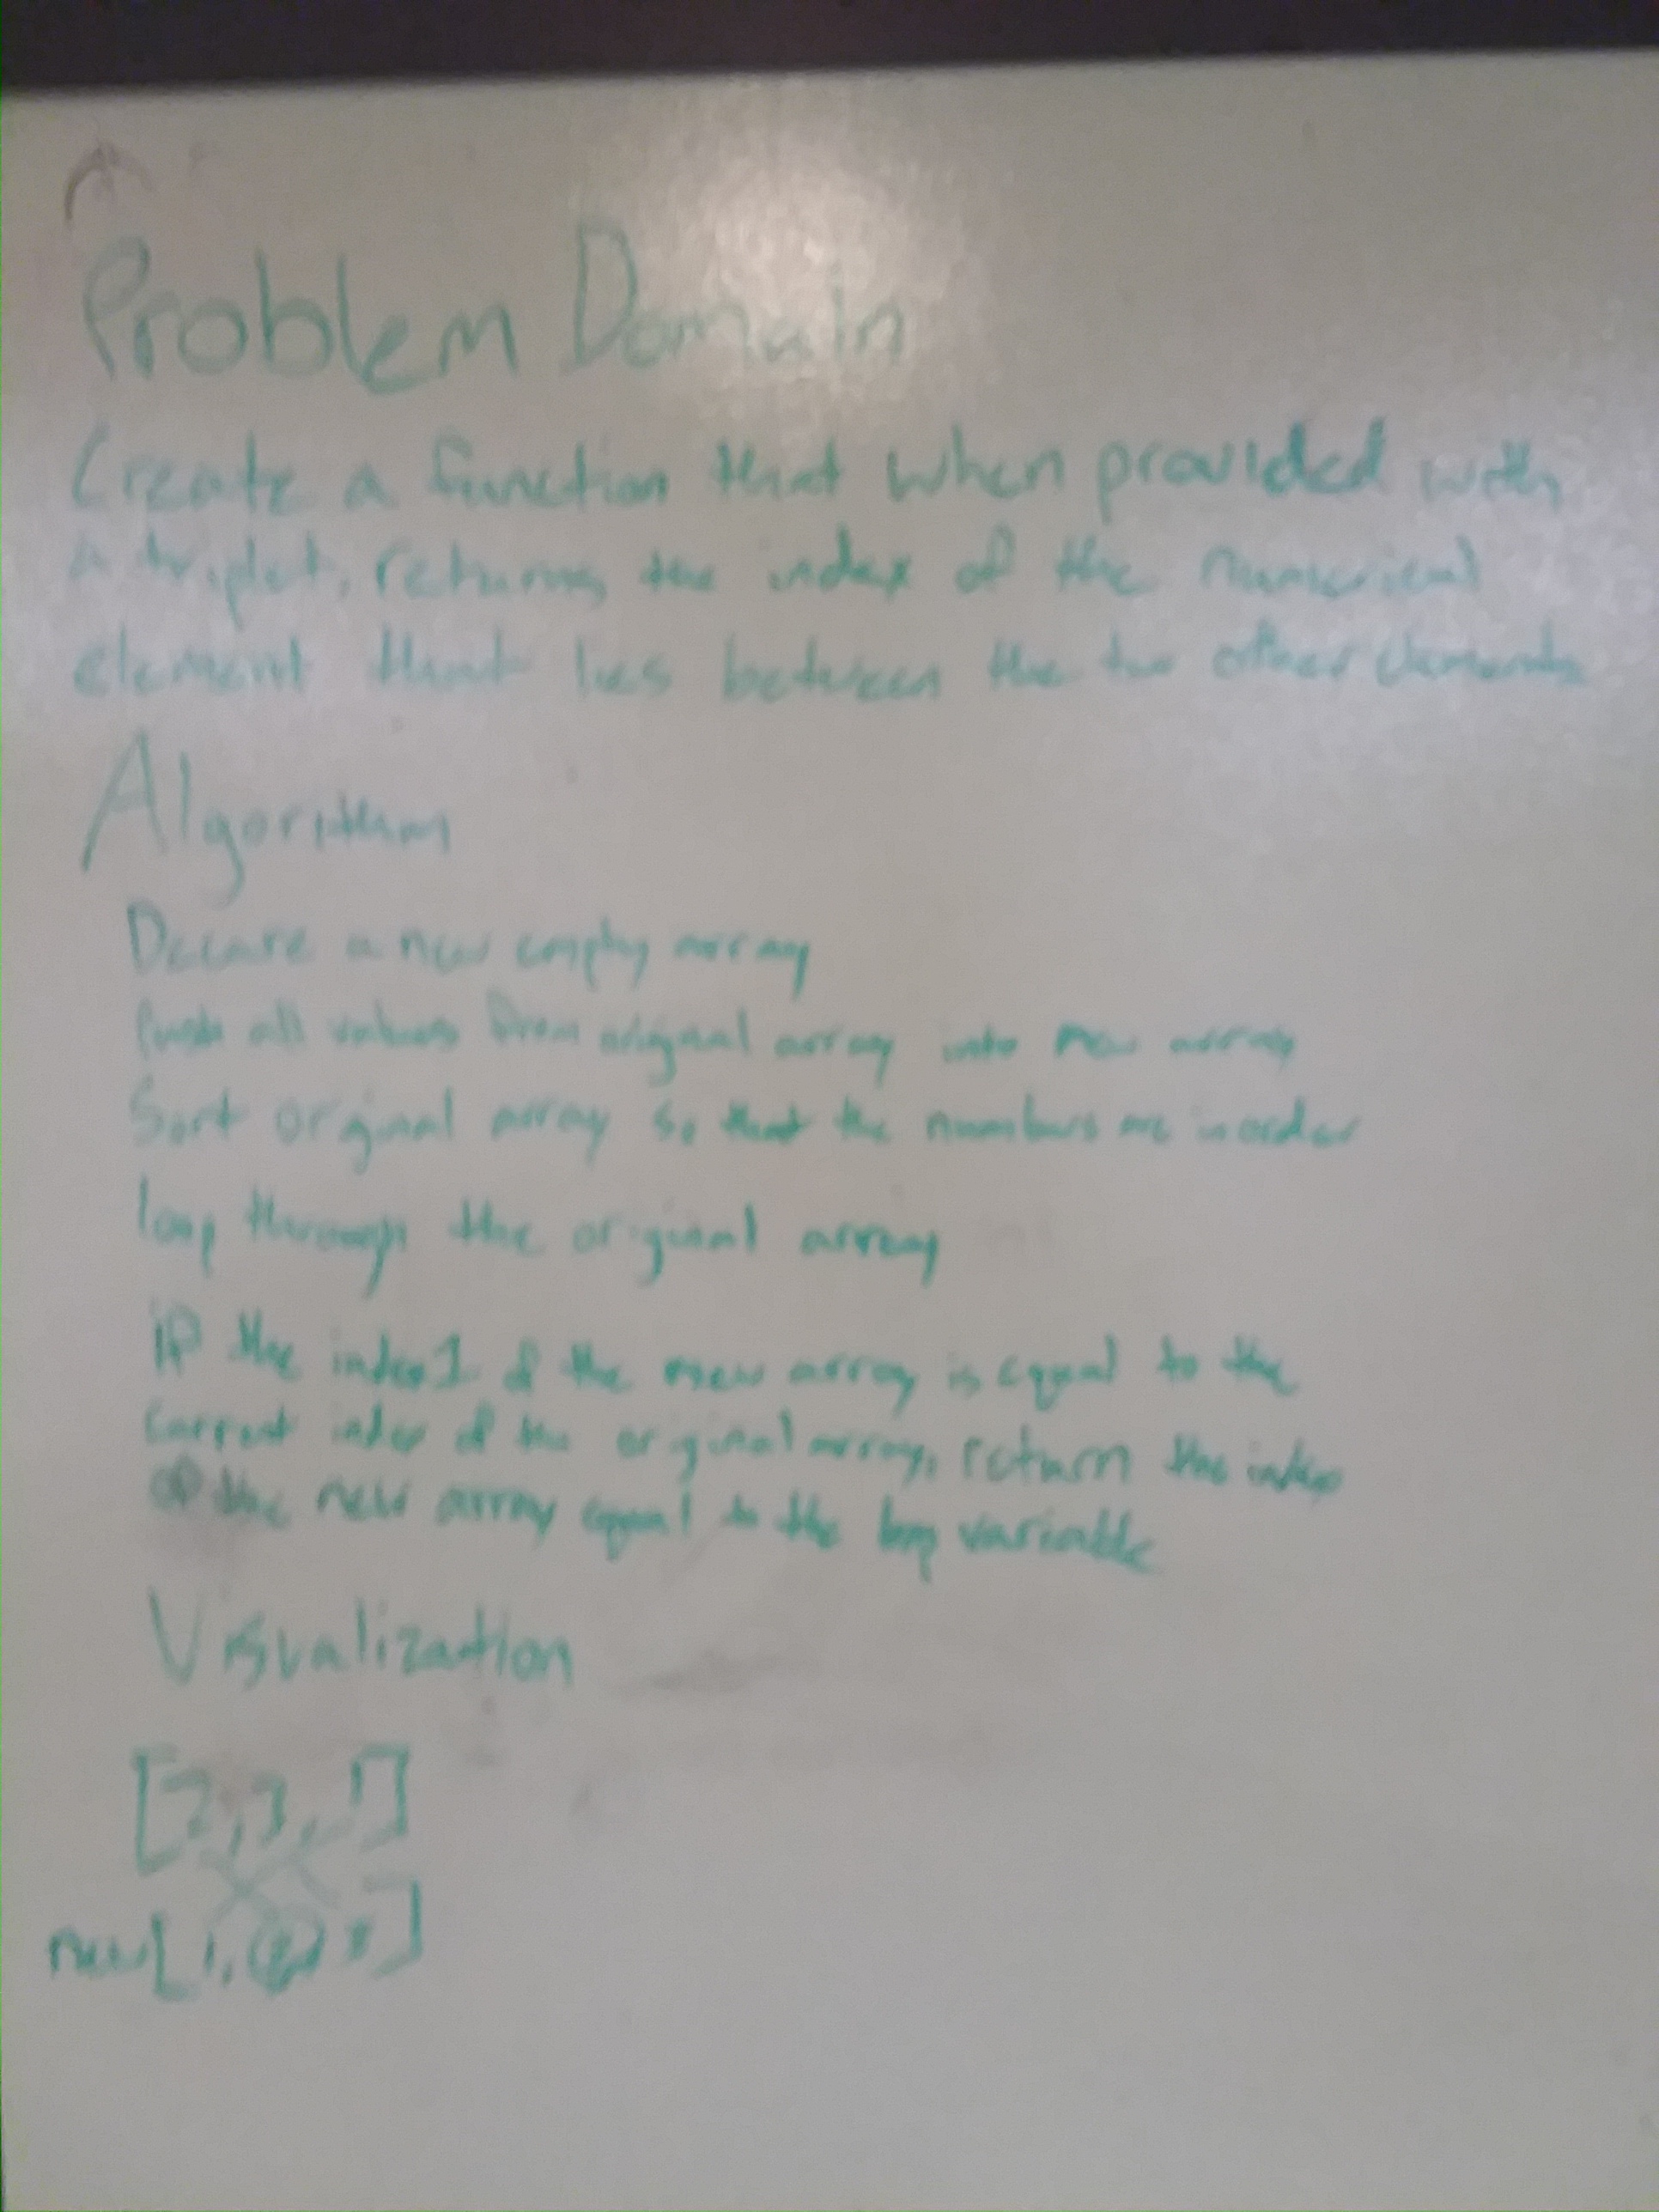 Problem Domain
Create a function that when provided with
a triplet, returns the index of the numerical
element that lies between the two other elements
Algorithm
Decare a new empty array
Push all values from original array into new array
Sort orginal array so that the numbers are in order
loop through the original array
if the index 1 of the new array is equal to the
current index of the original array, return the index
of the new array equal to the loop variable
Visualization
[2,3,1]
new[1,(2)